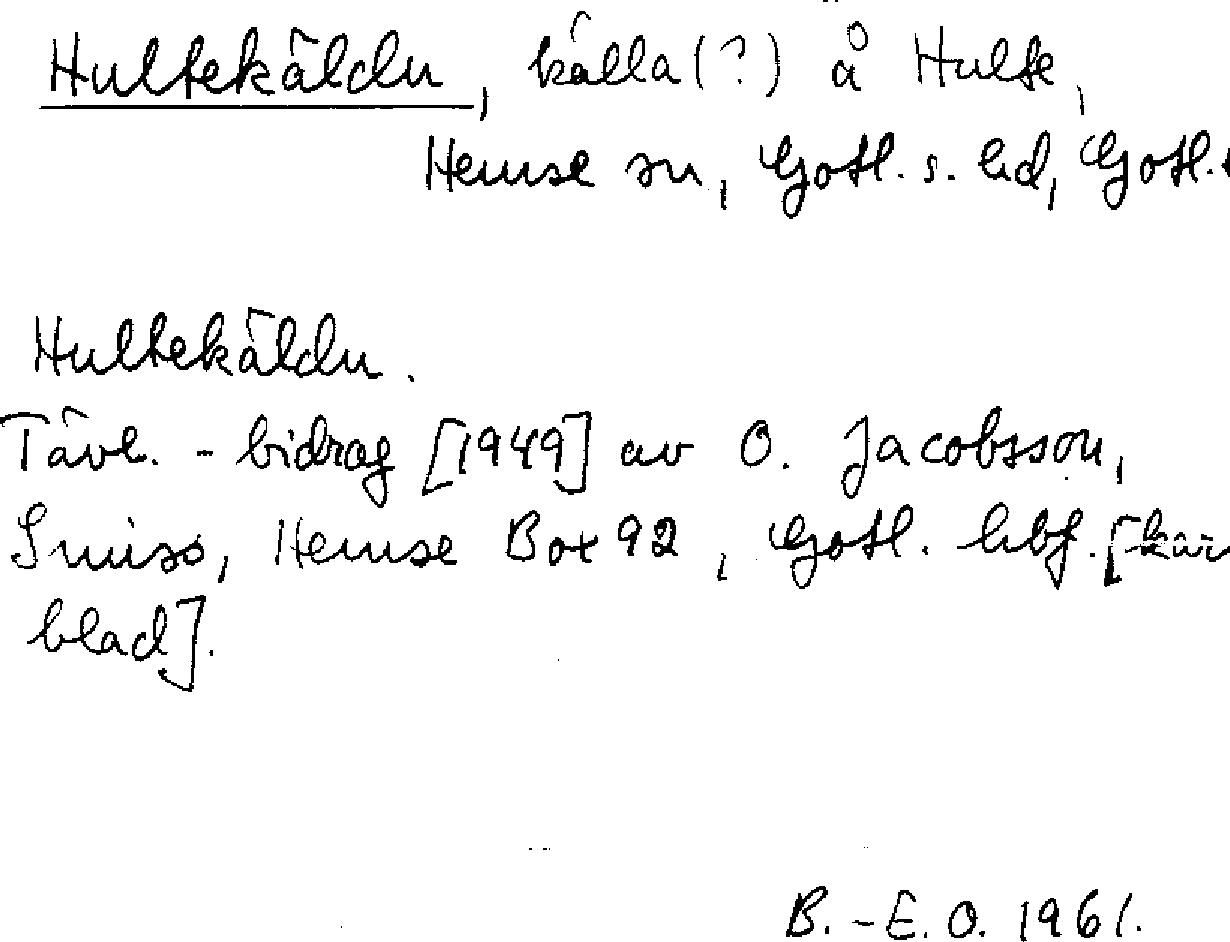 Hultekäldu, källa (?) å Hulte,
Hemse sn, Gotl. s. hd, Gotl.
Hultekäldu.
Tävl.-bidrag [1949] av O. Jacobsson,
Smiss, Hemse Box 92, Gotl. hbf. [kär
blad].
B.-E. O. 1961.